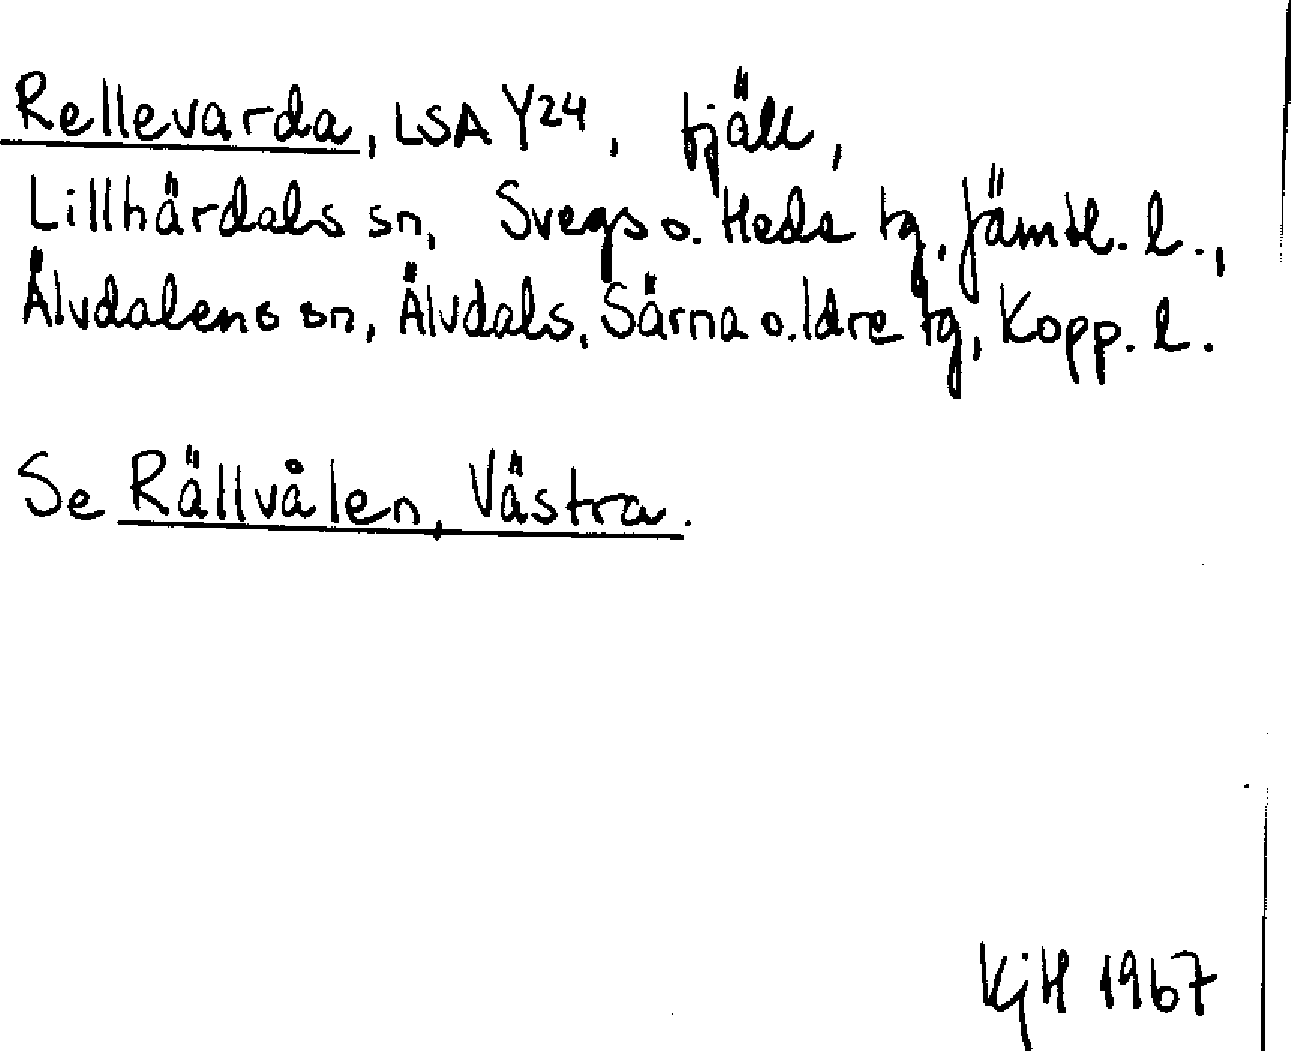 Rellevarda, LSA Y24, fjäll,
Lillhärdals sn, Svegs o. Heds tg, Jämtl. l.,
Älvdalens sn, Älvdals, Särna o. Idre tg, Kopp. l.
Se Rällvålen, Västra.
KjH 1967